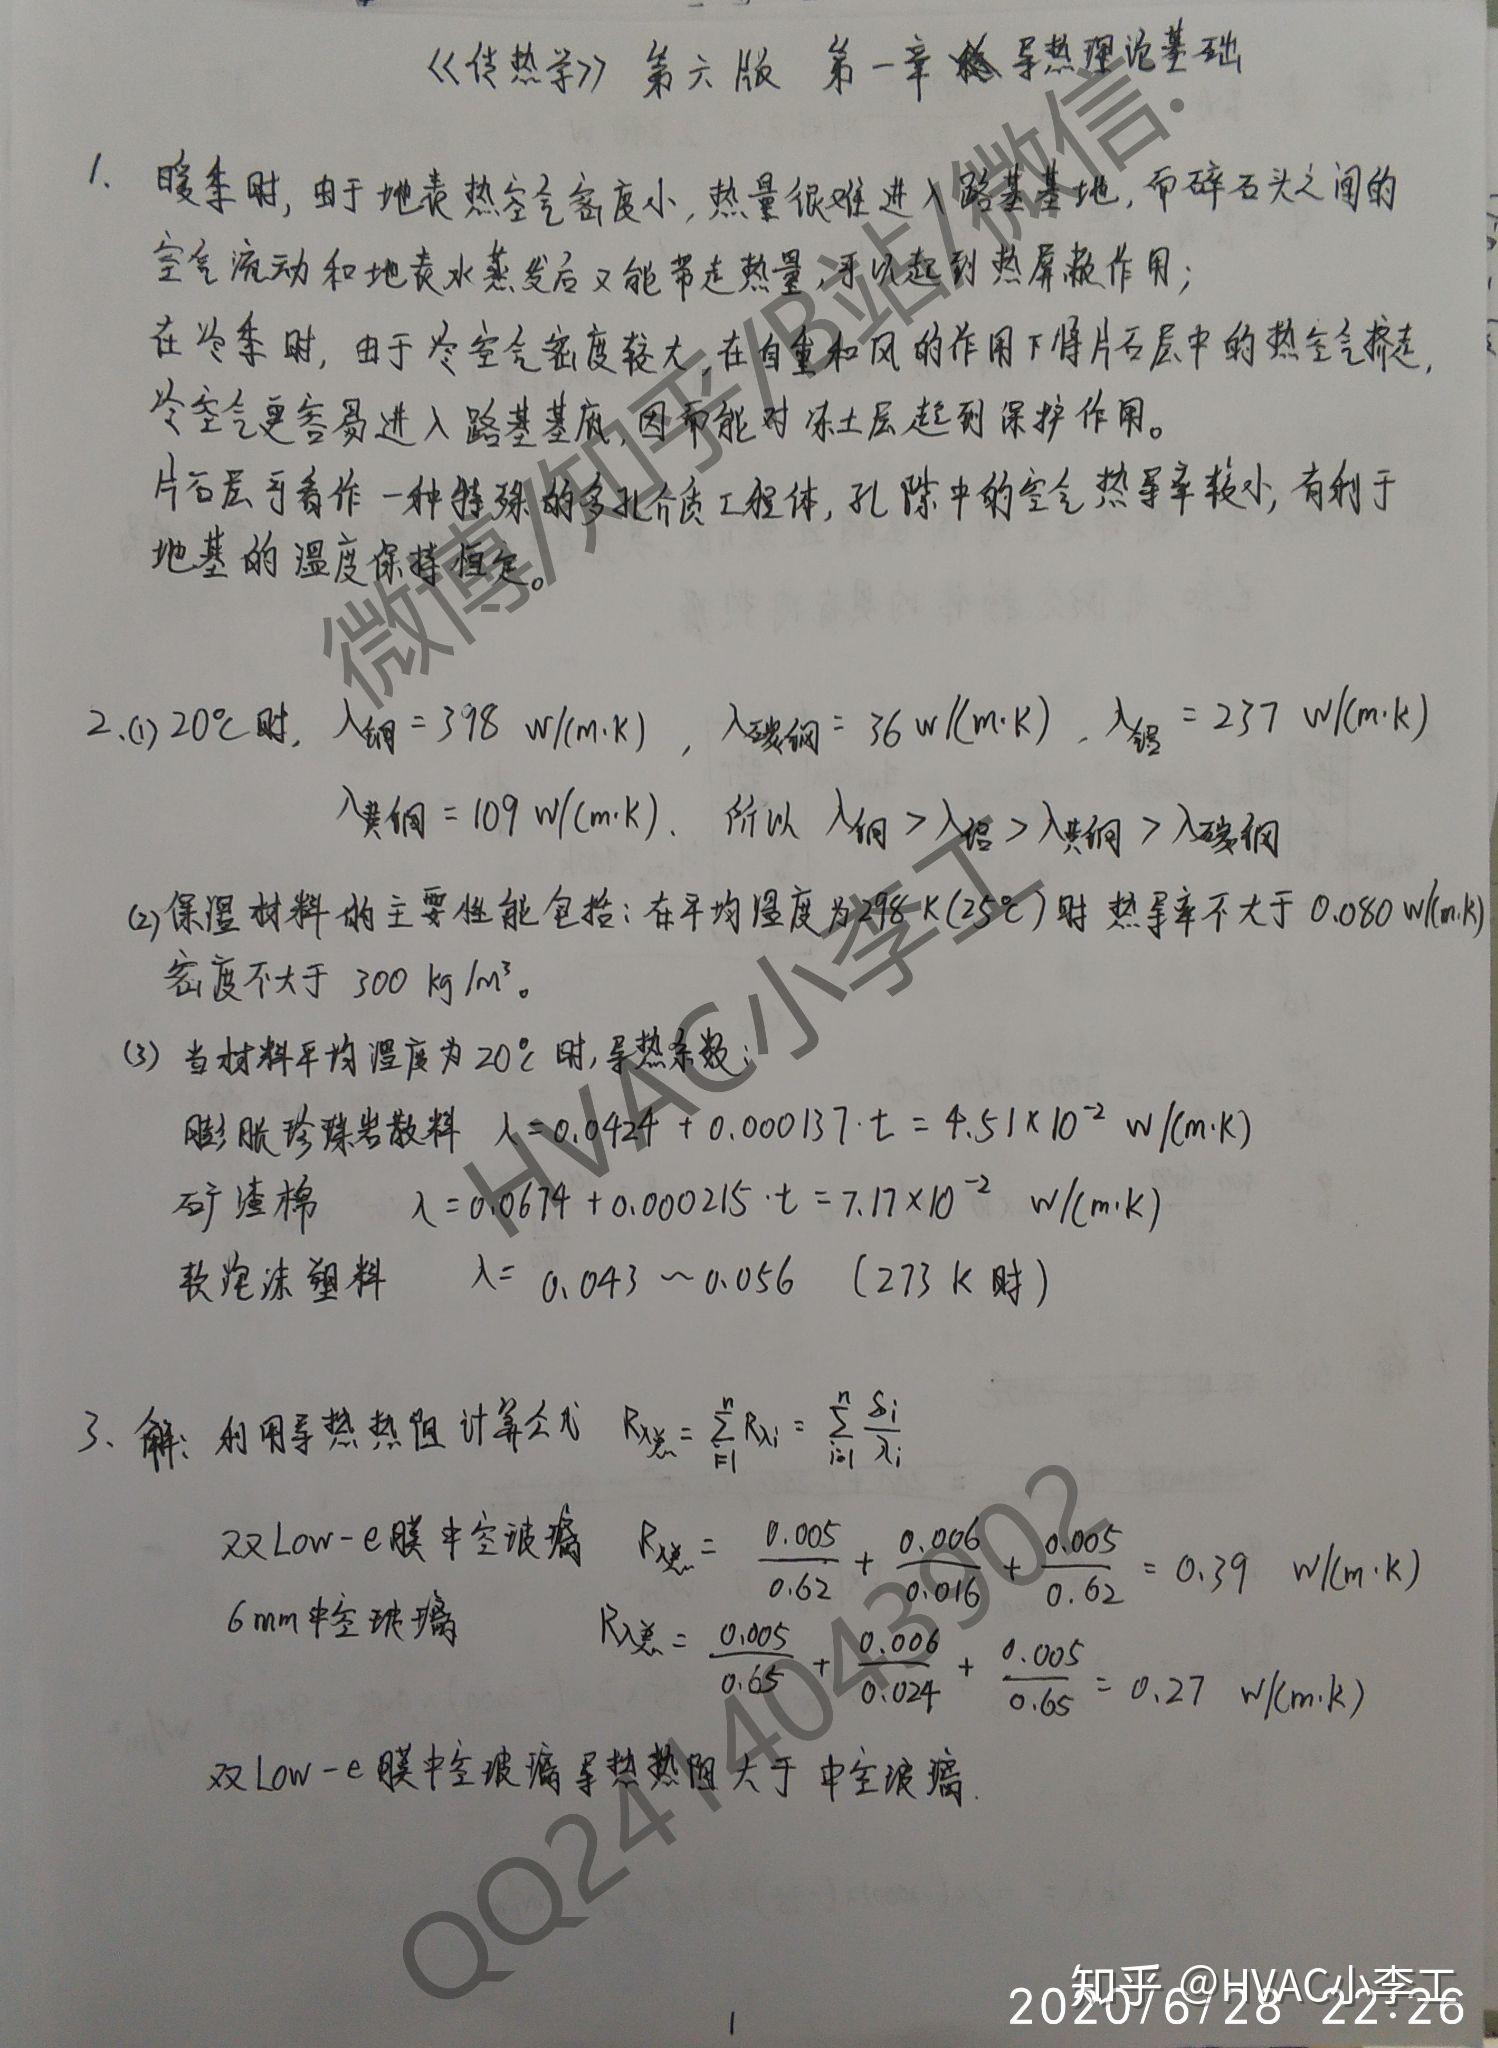 《传热学》 第六版 第一章 导热理论基础
1、 暖季时,由于地表热空气密度小,热量很难进入路基基地,而碎石头之间的
空气流动和地表水蒸发后又能带走热量,可以起到热屏蔽作用;
在冷季时,由于冷空气密度较大,在自重和风的作用下将片石层中的热空气挤走,
冷空气更容易进入路基基底,因而能对冻土层起到保护作用。
片石层可看作一种特殊的多孔介质工程体,孔隙中的空气热导率较小,有利于
地基的温度保持恒定。
2、(1) 20℃时, λ铜 = 398 W/(m·K) , λ碳钢 = 36 W/(m·K) , λ铝 = 237 W/(m·K)
λ黄铜 = 109 W/(m·K). 所以 λ铜 > λ铝 > λ黄铜 > λ碳钢
(2) 保温材料的主要性能包括:在平均温度为298K(25℃)时热导率不大于0.080 W/(m·K)
密度不大于 300 kg/m³。
(3) 当材料平均温度为20℃时,导热系数:
膨胀珍珠岩散料 λ=0.0424 + 0.000137·t = 4.51×10⁻² W/(m·K)
矿渣棉 λ=0.0674 + 0.000215·t = 7.17×10⁻² W/(m·K)
软泡沫塑料 λ= 0.043 ~ 0.056 (273 K 时)
3、解: 利用导热热阻计算公式 Rλ总 = Σ(i=1→n) Rλi = Σ(i=1→n) δi/λi
双Low-e膜中空玻璃 Rλ总 = 0.005/0.62 + 0.006/0.016 + 0.005/0.62 = 0.39 W/(m·K)
6mm中空玻璃 Rλ总 = 0.005/0.65 + 0.006/0.024 + 0.005/0.65 = 0.27 W/(m·K)
双Low-e膜中空玻璃导热热阻大于中空玻璃.
1
微博/知乎/B站/微信:
HVAC小李工
QQ2414043902
知乎 @HVAC小李工
2020/6/28 22:26